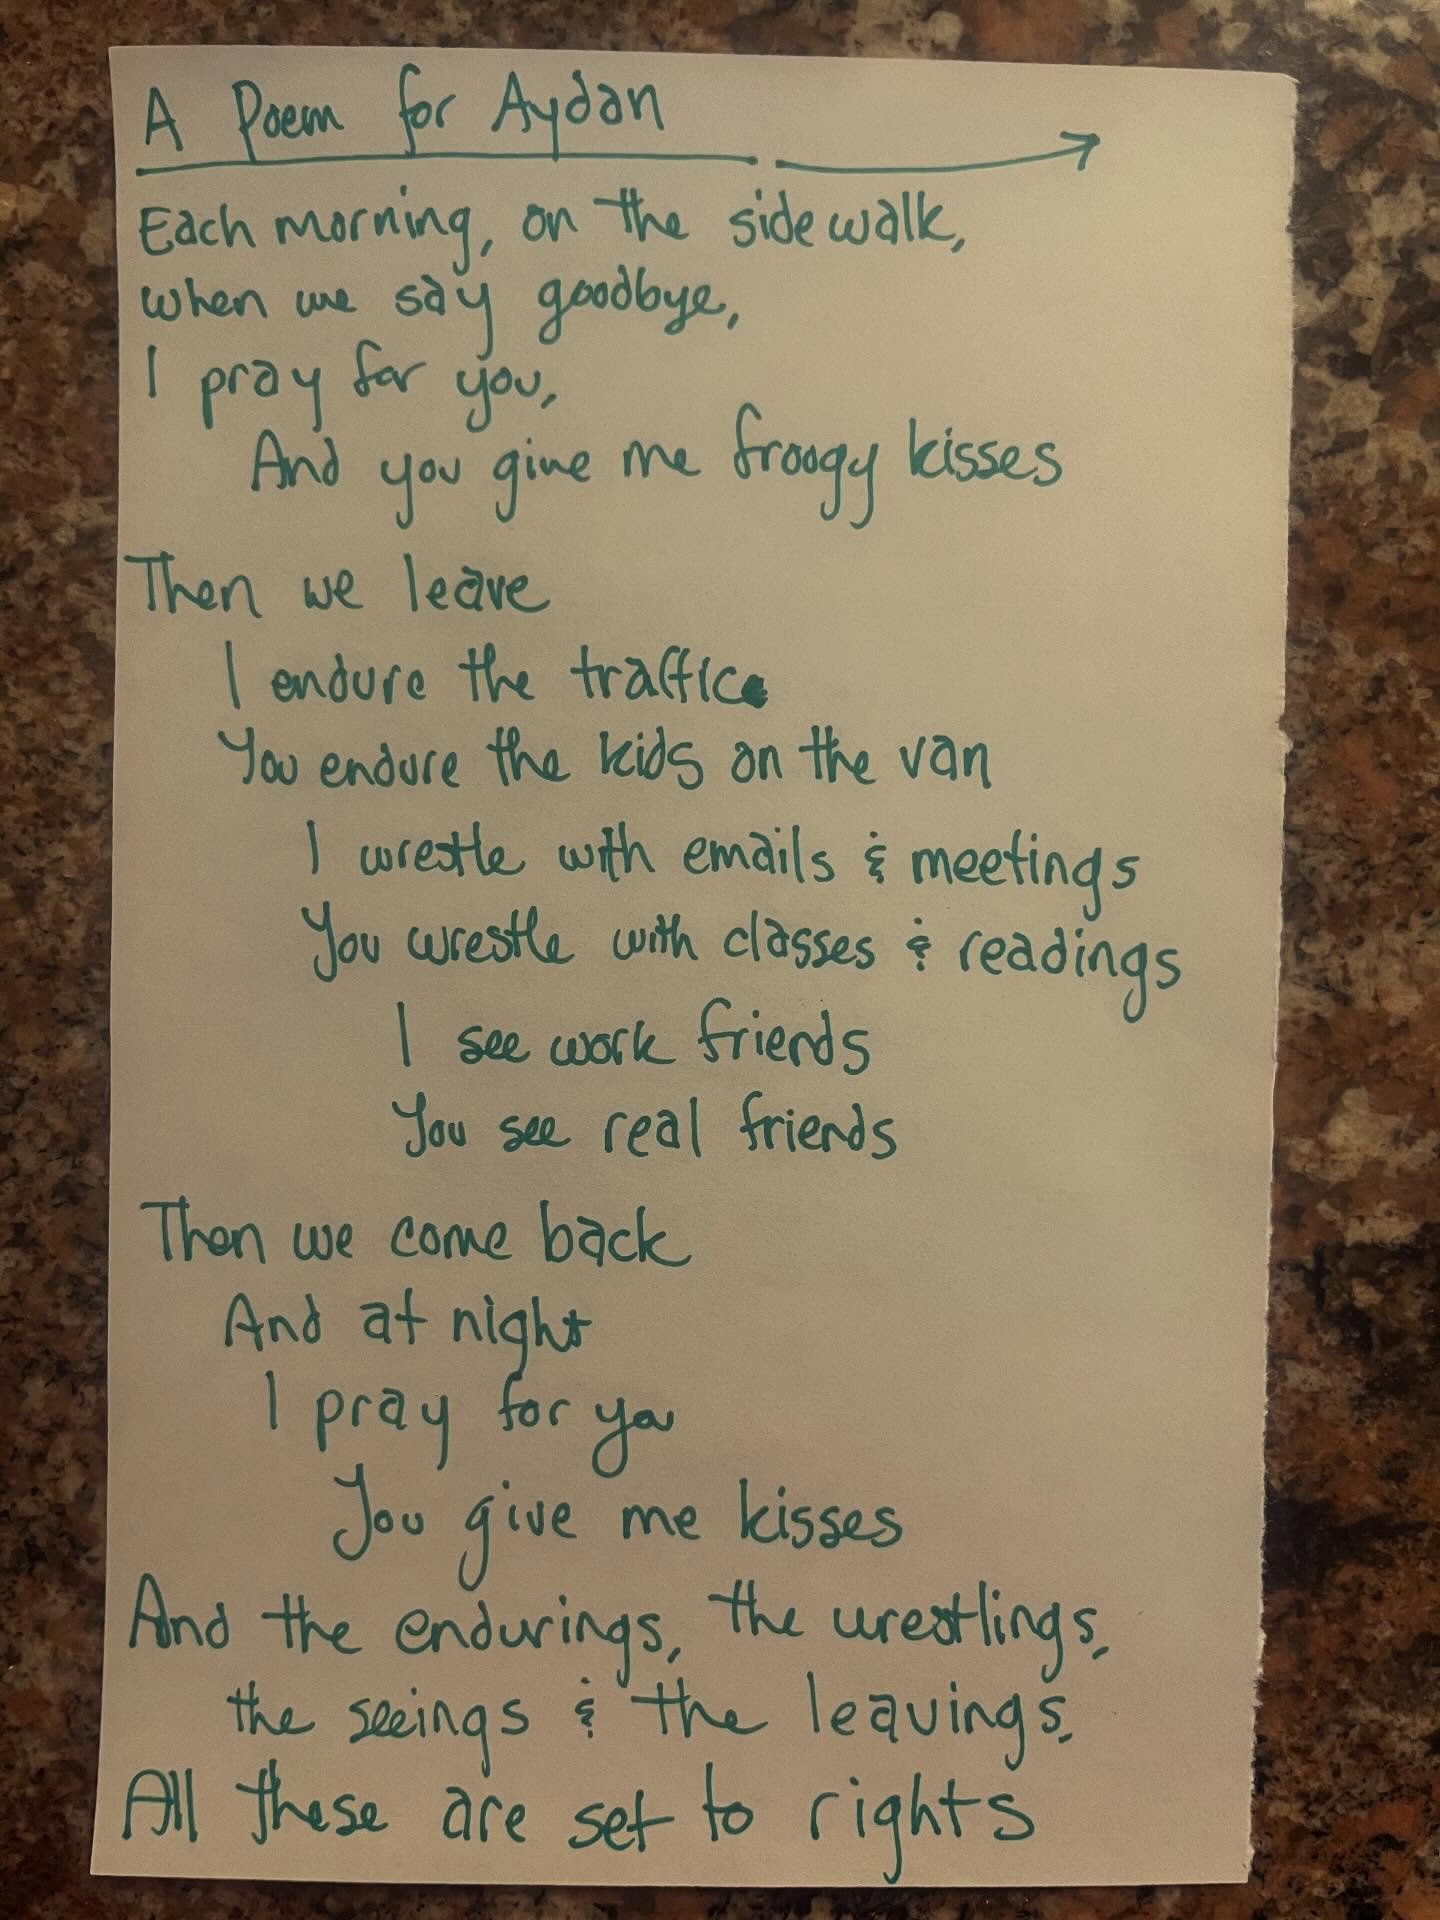 A Poem for Aydan
Each morning, on the sidewalk,
when we say goodbye,
I pray for you,
And you give me froogy kisses
Then we leave
I endure the traffic
You endure the kids on the van
I wrestle with emails & meetings
You wrestle with classes & readings
I see work friends
You see real friends
Then we come back
And at night
I pray for you
You give me kisses
And the endurings, the wrestlings,
the seeings & the leavings,
All these are set to rights